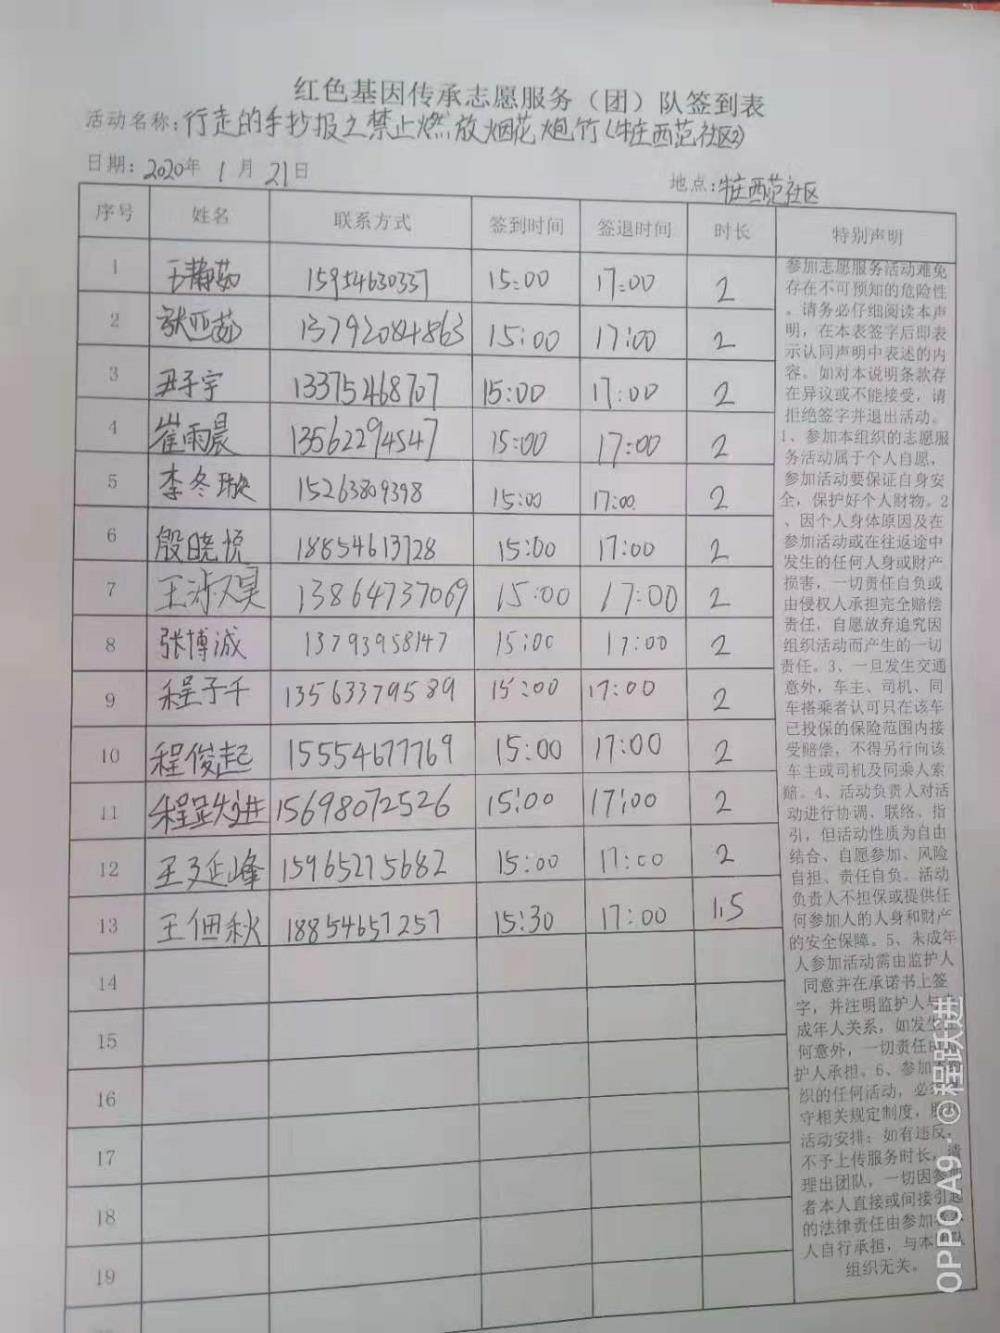 红色基因传承志愿服务（团）队签到表
活动名称：行走的手抄报之禁止燃放烟花炮竹（牛庄西范社区2）
日期：2020年 1 月 21日 地点：牛庄西范社区
序号 姓名 联系方式 签到时间 签退时间 时长 特别声明
1 王静茹 15954630337 15:00 17:00 2
2 张亚茹 13792084863 15:00 17:00 2
3 尹子宇 13375468707 15:00 17:00 2
4 崔雨晨 13562294547 15:00 17:00 2
5 李冬璇 15263809398 15:00 17:00 2
6 殷晓悦 18854613728 15:00 17:00 2
7 王 13864737069 15:00 17:00 2
8 张博诚 13793958147 15:00 17:00 2
9 程子千 13563379589 15:00 17:00 2
10 程俊起 15554677769 15:00 17:00 2
11 程跃进 15698072526 15:00 17:00 2
12 王延峰 15965215682 15:00 17:00 2
13 王佃秋 18854657257 15:30 17:00 1.5
14
15
16
17
18
19
参加志愿服务活动难免
存在不可预知的危险性
。请务必仔细阅读本声
明，在本表签字后即表
示认同声明中表述的内
容。如对本说明条款存
在异议或不能接受，请
拒绝签字并退出活动。
1、参加本组织的志愿服
务活动属于个人自愿，
参加活动要保证自身安
全，保护好个人财物。2
、因个人身体原因及在
参加活动或在往返途中
发生的任何人身或财产
损害，一切责任自负或
由侵权人承担完全赔偿
责任，自愿放弃追究因
组织活动而产生的一切
责任。3、一旦发生交通
意外，车主、司机、同
车搭乘者认可只在该车
已投保的保险范围内接
受赔偿，不得另行向该
车主或司机及同乘人索
赔。4、活动负责人对活
动进行协调、联络、指
引，但活动性质为自由
结合、自愿参加、风险
自担、责任自负。活动
负责人不担保或提供任
何参加人的人身和财产
的安全保障。5、未成年
人参加活动需由监护人
同意并在承诺书上签
字，并注明监护人与
成年人关系，如发生
何意外，一切责任由
护人承担。6、参加
织的任何活动，必
守相关规定制度，服
活动安排；如有违反，
不予上传服务时长，清
理出团队，一切因参
者本人直接或间接引起
的法律责任由参加
人自行承担，与本
组织无关。
OPPO A9 · ©程跃进